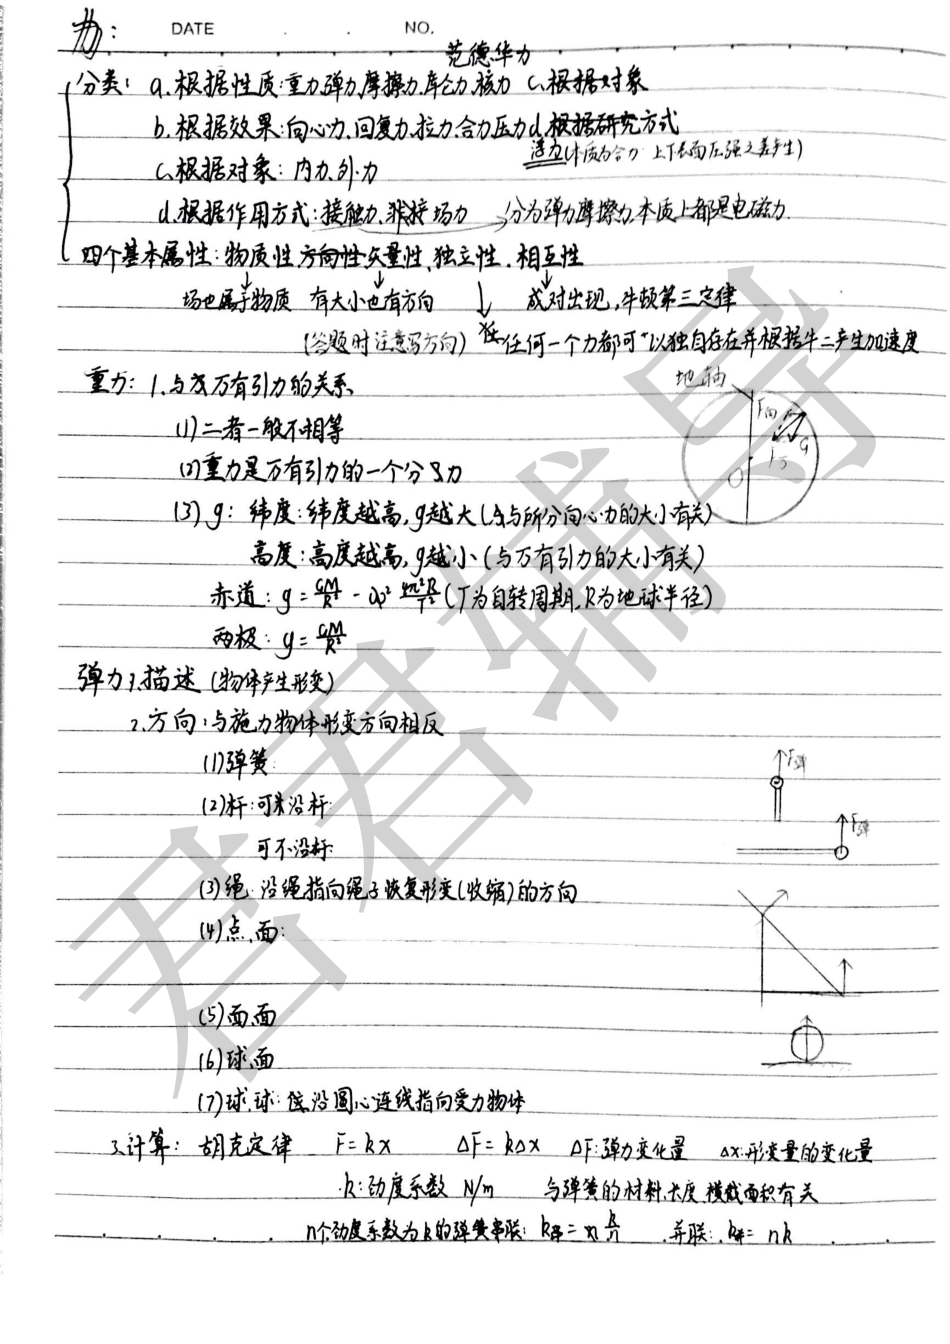 力：
DATE . . NO.
范德华力
分类：a.根据性质:重力,弹力,摩擦力,库仑力,核力 c.根据对象
b.根据效果:向心力,回复力,拉力,合力,压力 d.根据研究方式
浮力(本质为合力 上下表面压强之差产生)
c.根据对象：内力.外力
d.根据作用方式:接触力.非接场力 分为弹力摩擦力,本质上都是电磁力.
四个基本属性:物质性,方向性矢量性.独立性.相互性
场也属于物质 有大小也有方向 成对出现,牛顿第三定律
(答题时注意写方向) 任何一个力都可以独自存在并根据牛二产生加速度
重力：1.与万有引力的关系
地轴
(1)二者一般不相等
F向
G
F万
O
(2)重力是万有引力的一个分力
(3)g：纬度:纬度越高,g越大(与所分向心力的大小有关)
高度:高度越高,g越小(与万有引力的大小有关)
赤道：g = GM/R² - 4π²R/T² (T为自转周期,R为地球半径)
两极：g = GM/R²
弹力 1.描述 (物体产生形变)
2.方向:与施力物体形变方向相反
(1)弹簧
F弹
(2)杆:可沿杆
F弹
可不沿杆
(3)绳 沿绳指向绳子恢复形变(收缩)的方向
(4)点.面:
(5)面.面
(6)球.面
(7)球.球:沿圆心连线指向受力物体
3.计算：胡克定律 F=kx ΔF=kΔx ΔF:弹力变化量 Δx:形变量的变化量
k:劲度系数 N/m 与弹簧的材料.长度.横截面积有关
n个劲度系数为k的弹簧串联：k串= k/n .并联:k并= nk
君君辅导